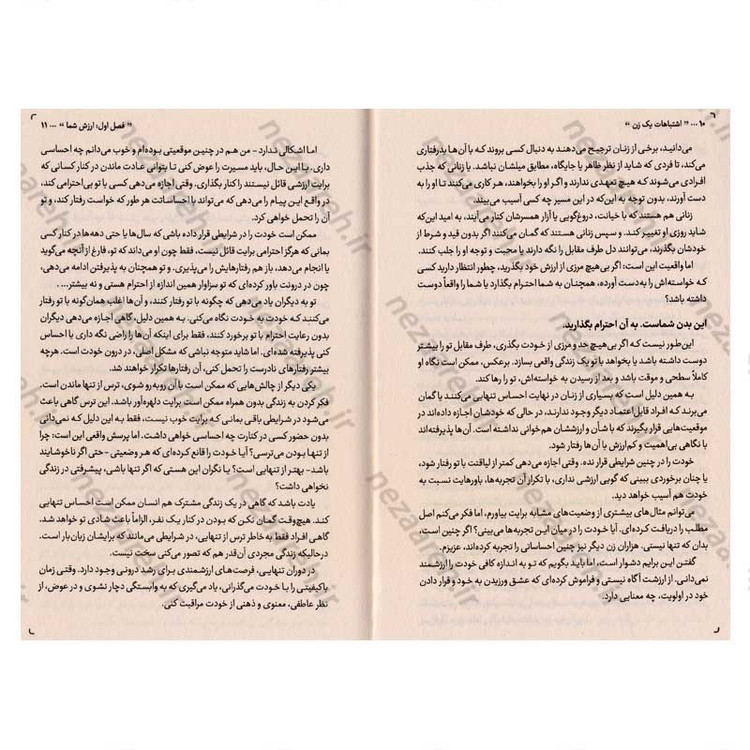 ۱۰ ... " اشتباهات یک زن "
می‌دانید، برخی از زنان ترجیح می‌دهند به دنبال کسی بروند که با آن‌ها بدرفتاری
می‌کند، تا فردی که شاید از نظر ظاهر یا جایگاه، مطابق میلشان نباشد. یا زنانی که جذب
افرادی می‌شوند که هیچ تعهدی ندارند و اگر او را بخواهند، هر کاری می‌کنند تا او را به
دست آورند، بدون توجه به این‌که در این مسیر چه کسی آسیب می‌بیند.
زنانی هم هستند که با خیانت، دروغ‌گویی یا آزار همسرشان کنار می‌آیند، به امید این‌که
شاید روزی او تغییر کند. و سپس زنانی هستند که گمان می‌کنند اگر بدون قید و شرط از
خودشان بگذرند، می‌توانند دل طرف مقابل را نگه دارند یا محبت و توجه او را جلب کنند.
اما واقعیت این است: اگر بی‌هیچ مرزی از ارزش خود بگذرید، چطور انتظار دارید کسی
که خواسته‌اش را به‌دست آورده، همچنان به شما احترام بگذارد یا شما را واقعاً دوست
داشته باشد؟
این بدن شماست. به آن احترام بگذارید.
این‌طور نیست که اگر بی‌هیچ حد و مرزی از خودت بگذری، طرف مقابل تو را بیشتر
دوست داشته باشد یا بخواهد با تو یک زندگی واقعی بسازد. برعکس، ممکن است نگاه او
کاملاً سطحی و موقت باشد و بعد از رسیدن به خواسته‌اش، تو را رها کند.
به همین دلیل است که بسیاری از زنان در نهایت احساس تنهایی می‌کنند یا گمان
می‌برند که افراد قابل اعتماد دیگر وجود ندارند، در حالی که خودشان اجازه داده‌اند در
موقعیت‌هایی قرار بگیرند که با شأن و ارزششان هم‌خوانی نداشته است. آن‌ها پذیرفته‌اند
با نگاهی بی‌اهمیت و کم‌ارزش با آن‌ها رفتار شود.
خودت را در چنین شرایطی قرار نده. وقتی اجازه می‌دهی کمتر از لیاقتت با تو رفتار شود،
یا چنان برخوردی ببینی که گویی ارزشی نداری، با تکرار آن تجربه‌ها، باورهایت نسبت به
خودت هم آسیب خواهد دید.
می‌توانم مثال‌های بیشتری از وضعیت‌های مشابه برایت بیاورم، اما فکر می‌کنم اصل
مطلب را دریافت کرده‌ای. آیا خودت را در میان این تجربه‌ها می‌بینی؟ اگر چنین است،
بدان که تنها نیستی. هزاران زن دیگر نیز چنین احساساتی را تجربه کرده‌اند، عزیزم.
گفتن این برایم دشوار است، اما باید بگویم که تو به اندازه کافی خودت را ارزشمند
نمی‌دانی. از ارزشت آگاه نیستی و فراموش کرده‌ای که عشق ورزیدن به خود و قرار دادن
خود در اولویت، چه معنایی دارد.
" فصل اول: ارزش شما " ... ۱۱
اما اشکالی ندارد - من هم در چنین موقعیتی بوده‌ام و خوب می‌دانم چه احساسی
داری. با این حال، باید مسیرت را عوض کنی تا بتوانی عادت ماندن در کنار کسانی که
برایت ارزشی قائل نیستند را کنار بگذاری. وقتی اجازه می‌دهی کسی با تو بی‌احترامی کند،
در واقع این پیام را می‌دهی که می‌تواند با احساساتت هر طور که خواست رفتار کند، و تو
آن را تحمل خواهی کرد.
ممکن است خودت را در شرایطی قرار داده باشی که سال‌ها یا حتی دهه‌ها در کنار کسی
بمانی که هرگز احترامی برایت قائل نیست. فقط چون او می‌داند که تو، فارغ از آنچه می‌گوید
یا انجام می‌دهد، باز هم رفتارهایش را می‌پذیری. و تو همچنان به پذیرفتن ادامه می‌دهی،
چون در درونت باور کرده‌ای که تو سزاوار همین اندازه از احترام هستی و نه بیشتر...
تو به دیگران یاد می‌دهی که چگونه با تو رفتار کنند، و آن‌ها اغلب همان‌گونه با تو رفتار
می‌کنند که خودت به خودت نگاه می‌کنی. به همین دلیل، گاهی اجازه می‌دهی دیگران
بدون رعایت احترام با تو برخورد کنند، فقط برای اینکه آن‌ها را راضی نگه داری یا احساس
کنی پذیرفته شده‌ای. اما شاید متوجه نباشی که مشکل اصلی، در درون خودت است. هرچه
بیشتر رفتارهای نادرست را تحمل کنی، آن رفتارها تکرار خواهند شد.
یکی دیگر از چالش‌هایی که ممکن است با آن روبه‌رو شوی، ترس از تنها ماندن است.
فکر کردن به زندگی بدون همراه ممکن است برایت دلهره‌آور باشد. این ترس گاهی باعث
می‌شود در شرایطی باقی بمانی که برایت خوب نیست، فقط به این دلیل که نمی‌دانی
بدون حضور کسی در کنارت چه احساسی خواهی داشت. اما پرسش واقعی این است: چرا
از تنها بودن می‌ترسی؟ آیا خودت را قانع کرده‌ای که هر وضعیتی -حتی اگر ناخوشایند
باشد- بهتر از تنهایی است؟ یا نگران این هستی که اگر تنها باشی، پیشرفتی در زندگی
نخواهی داشت؟
یادت باشد که گاهی در یک زندگی مشترک هم انسان ممکن است احساس تنهایی
کند. هیچ‌وقت گمان نکن که بودن در کنار یک نفر، الزاماً باعث شادی تو خواهد شد.
گاهی افراد فقط به خاطر ترس از تنهایی، در شرایطی می‌مانند که برایشان زیان‌بار است.
درحالیکه زندگی مجردی آن‌قدر هم که تصور می‌کنی سخت نیست.
در دوران تنهایی، فرصت‌های ارزشمندی برای رشد درونی وجود دارد. وقتی زمان
باکیفیتی را با خودت می‌گذرانی، یاد می‌گیری که به وابستگی دچار نشوی و در عوض، از
نظر عاطفی، معنوی و ذهنی از خودت مراقبت کنی.
nezareh.ir